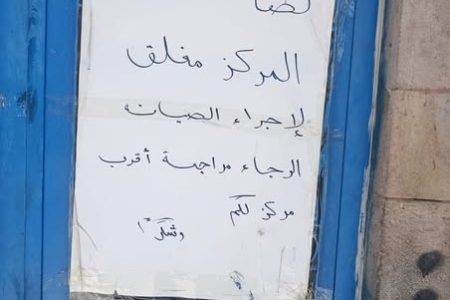 المركز مغلق
لإجراء الصيانه
الرجاء مراجعة أقرب
مركز لكم
وشكرًا